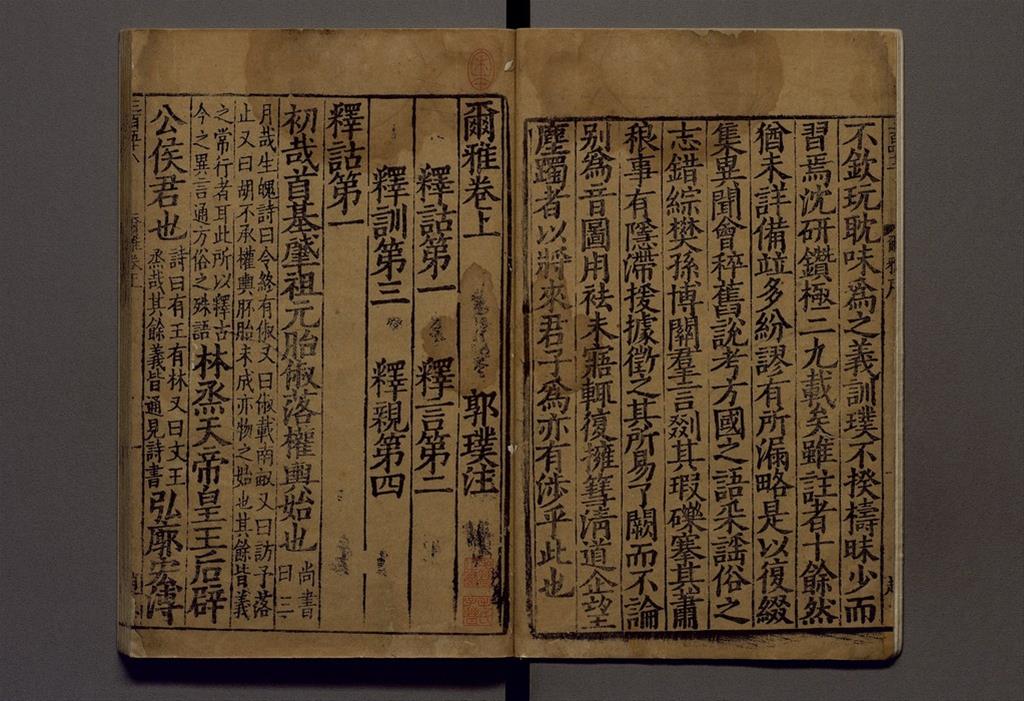 不欽玩耽味爲之義訓璞不揆檮昧少而
習焉沈研鑽極二九載矣雖註者十餘然
猶未詳備竝多紛謬有所漏略是以復綴
集異聞會稡舊說考方國之語采謠俗之
志錯綜樊孫博關羣言剟其瑕礫塞其肅
稂事有隱滯援據徵之其所易了闕而不論
别爲音圖用祛未寤輒復擁篲清道企望
塵躅者以將來君子爲亦有涉乎此也
爾雅卷上 郭璞注
釋詁第一 釋言第二
釋訓第三 釋親第四
釋詁第一
初哉首基肇祖元胎俶落權輿始也 尚書曰三
月哉生魄詩曰令終有俶又曰俶載南畝又曰訪予落
止又曰胡不承權輿胚胎未成亦物之始也其餘皆義
之常行者耳此所以釋古今之異言通方俗之殊語 林烝天帝皇王后辟
公侯君也 詩曰有王有林又曰文王烝哉其餘義皆通見詩書 弘廓宏溥